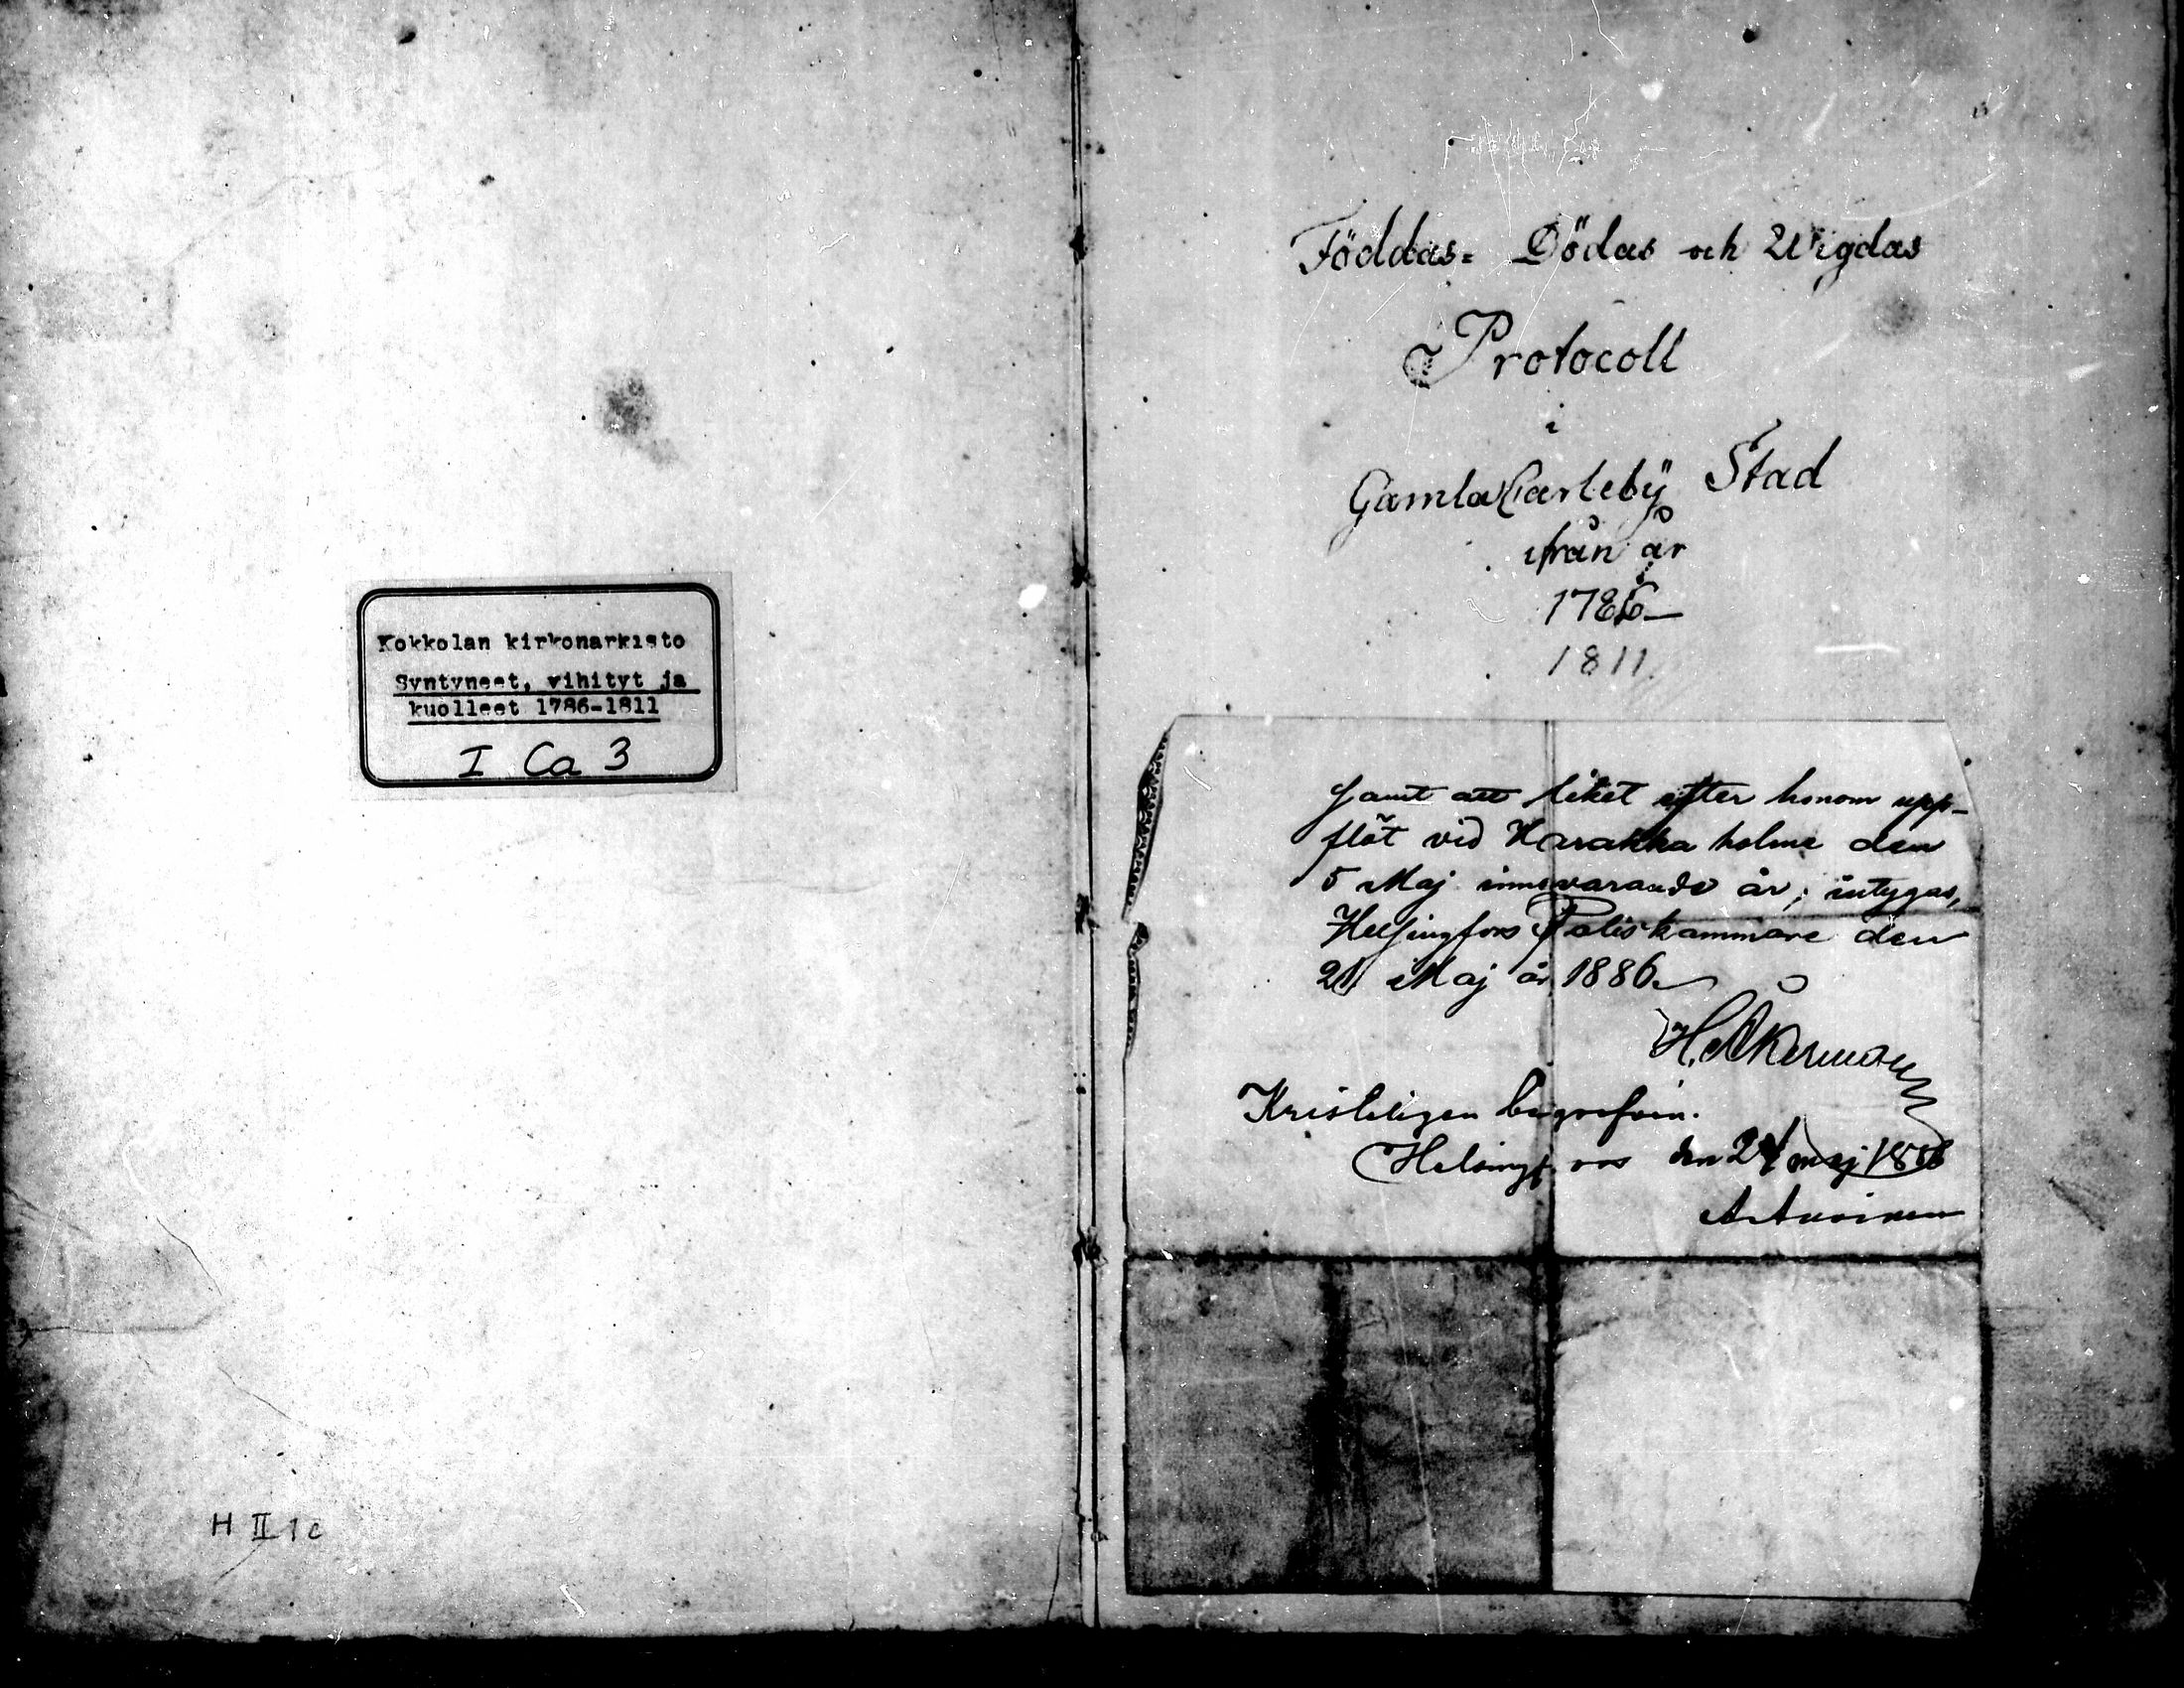 Kokkolan kirkonarkisto
Syntyneet, vihityt ja
kuolleet 1786-1811
I Ca 3
H II 1 c
Föddas= Dödas och Wigdas
Protocoll
i
Gamla Carlebÿ Stad
ifrån år
1786—
1811.
samt att liket efter honom upp-
flöt vid Harakka holme den
5 Maj innevarande år; intygas,
Helsingfors Poliskammare den
21 Maj år 1886.
H. Åkerman
Kristeligen begrafven.
Helsingfors den 24 maj 1886